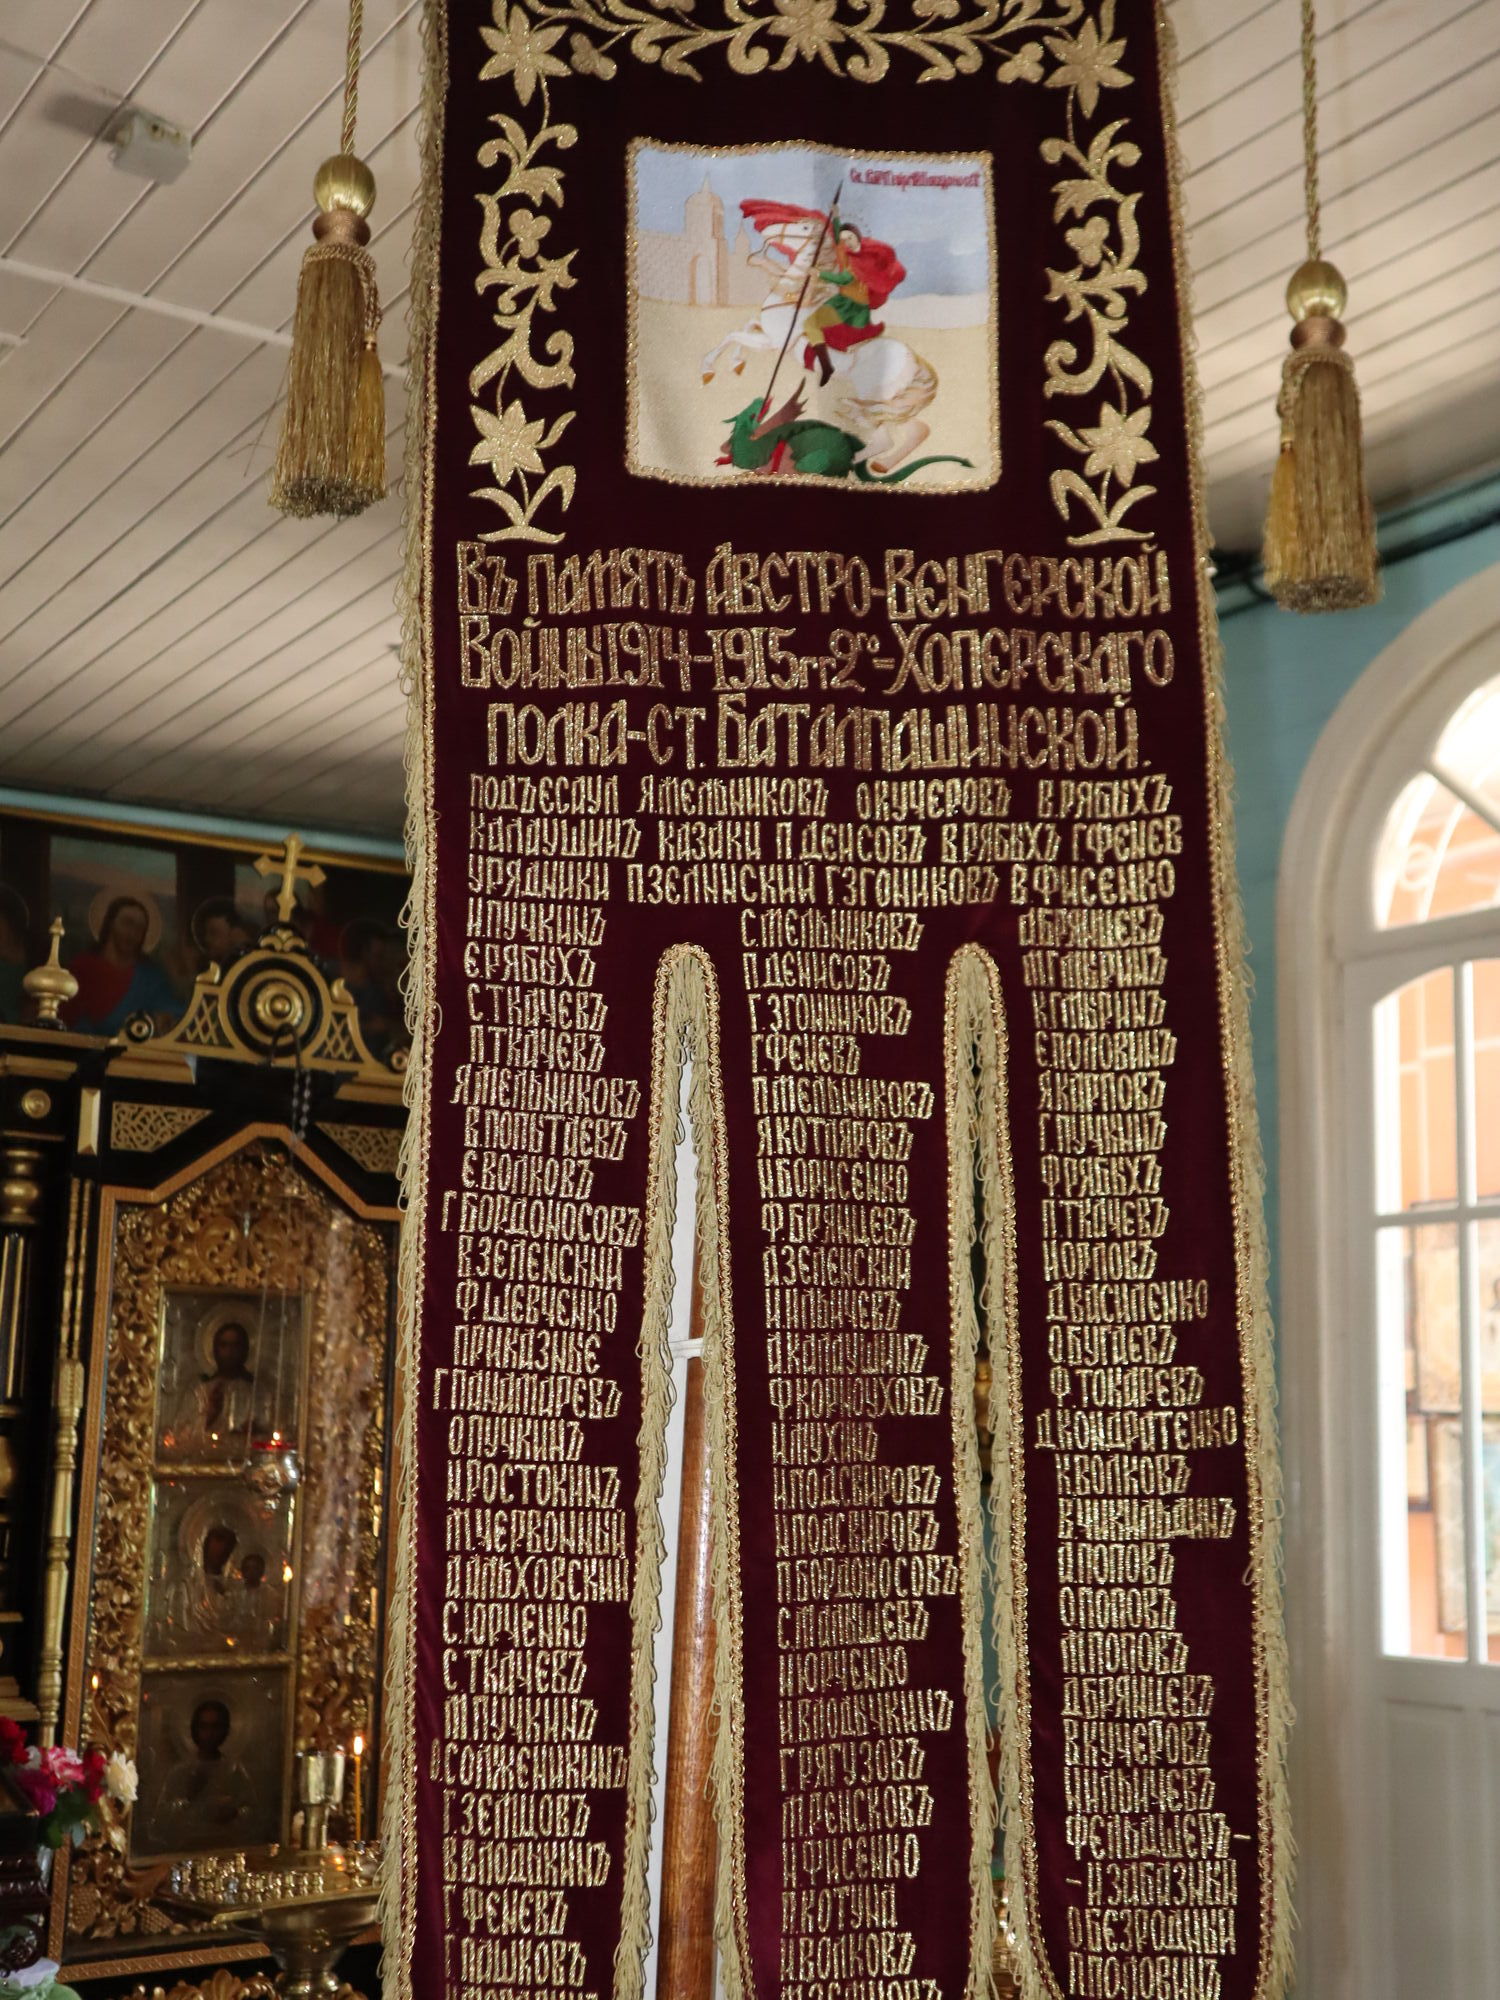 Въ память Австро-Венгерской
Войны 1914-1915гг 2го-Хоперскаго
полка-ст. Баталпашинской.
подъесаул Я.Мельниковъ О.Кучеровъ В.Рябыхъ
Калаушинъ казаки П.Денсовъ В.Рябыхъ Г.Фенев
урядники П.Зелинский Г.Згониковъ В.Фисенко
И.Пучкинъ
Е.Рябыхъ
С.Ткачевъ
П.Ткачевъ
Я.Мельниковъ
Е.Волковъ
Г.Бордоносовъ
В.Зеленский
Ф.Шевченко
приказные
Г.Панамаревъ
О.Пучкинъ
И.Ростокинъ
М.Червонный
С.Юрченко
С.Ткачевъ
М.Пучкинъ
О.Солженикинъ
Г.Земцовъ
В.Влодыкинъ
Г.Феневъ
Г.Машковъ
С.Мельниковъ
П.Денисовъ
Г.Згонниковъ
Г.Феневъ
П.Мельниковъ
Я.Котляровъ
И.Борисенко
Ф.Брянцевъ
Д.Зеленский
И.Ильичевъ
А.Калаушинъ
Ф.Корноуховъ
И.Мухин
И.Подсвировъ
И.Подсвировъ
П.Бордоносовъ
С.Малышевъ
И.Юрченко
И.Влодычкинъ
Г.Рягузовъ
М.Ренсковъ
И.Фисенко
И.Волковъ
Д.Брянцевъ
М.Гавринъ
К.Гавринъ
Е.Половинъ
Я.Карповъ
Г.Пучкинъ
Ф.Рябыхъ
П.Ткачевъ
И.Орловъ
Д.Василенко
О.Бугаевъ
Ф.Токаревъ
Д.Кондратенко
К.Волковъ
В.Чикильдинъ
О.Поповъ
М.Поповъ
Д.Брянцевъ
В.Кучеровъ
И.Ильичевъ
Фельдшеръ-
О.Безродный
П.Половинъ